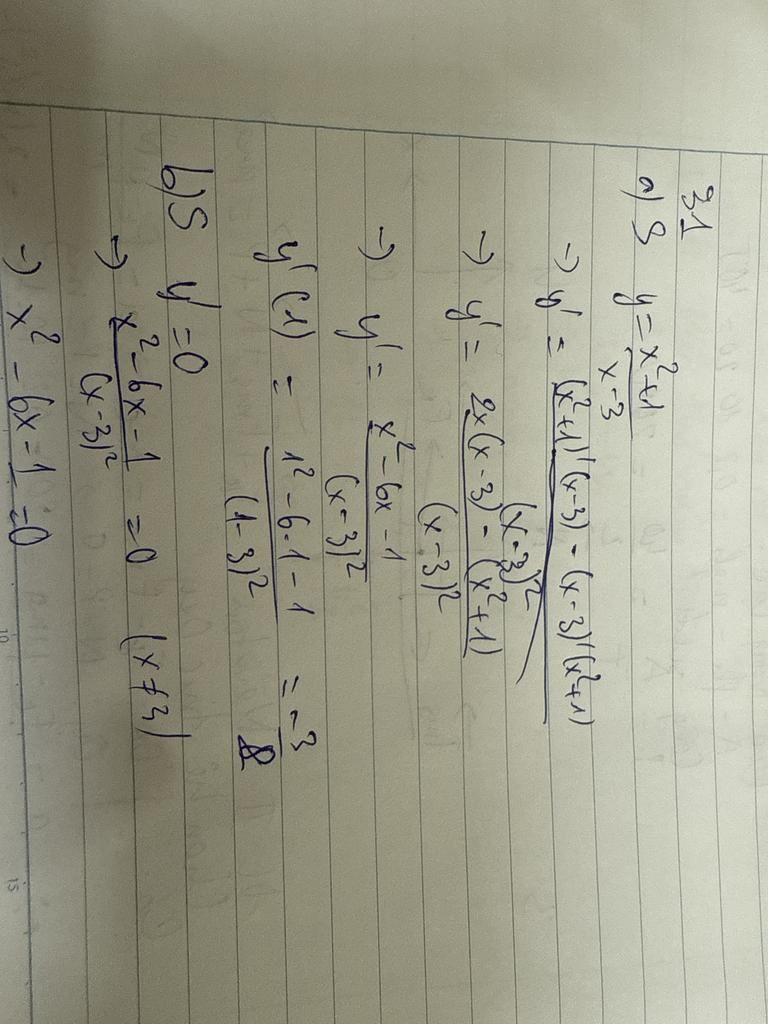 31
a) S y = x²+1 / x-3
→ y' = (x²+1)'(x-3) - (x-3)'(x²+1) / (x-3)²
→ y' = 2x(x-3) - (x²+1) / (x-3)²
→ y' = x²-6x-1 / (x-3)²
y'(1) = 1²-6.1-1 / (1-3)² = -3 /
b) S y' = 0
→ x²-6x-1 / (x-3)² = 0 (x≠3)
→ x²-6x-1=0
10
15